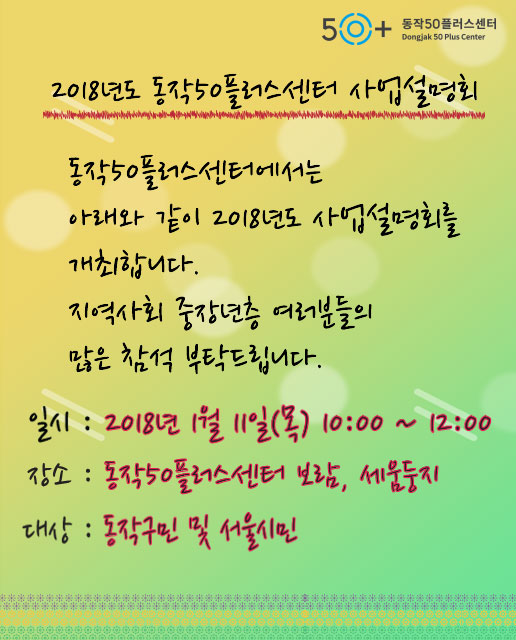 50+ 동작50플러스센터
Dongjak 50 Plus Center
2018년도 동작50플러스센터 사업설명회
동작50플러스센터에서는
아래와 같이 2018년도 사업설명회를
개최합니다.
지역사회 중장년층 여러분들의
많은 참석 부탁드립니다.
일시 : 2018년 1월 11일(목) 10:00 ~ 12:00
장소 : 동작50플러스센터 보람, 세움둥지
대상 : 동작구민 및 서울시민